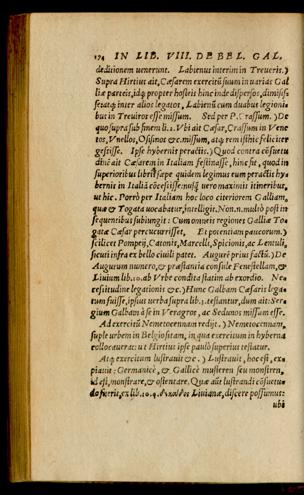 174 IN LIB. VIII. DE BEL. GAL.
deditionem uenerunt. Labienus interim in Treueris.)
Supra Hirtius ait, Cæsarem exercitũ suum in uarias Gal
liæ parteis, idq; propter hosteis hinc inde dispersos, dimisis
se: atq; inter alios legatos, Labienũ cum duabus legioni
bus in Treuiros esse missum. Sed per P. Crassum.) De
quo supra sub finem li.3. Vbi ait Cæsar, Crassum in Vene
tos, Vnellos, Osismos &c. missum, atq; rem isthic feliciter
gessisse. Ipse hybernis peractis.) Quod contra cõsuetu
dinẽ ait Cæsarem in Italiam festinasse, hinc fit, quod in
superioribus libris sæpe quidem legimus eum peractis hy
bernis in Italiã cõcessisse: nusq̃ uero maximis itineribus,
ut hic. Porrò per Italiam hoc loco citeriorem Galliam,
quæ & Togata uocabatur, intelligit. Nam. n. multò post in
sequentibus subiungit: Cum omneis regiones Galliæ To
gatæ Cæsar percucurrisset. Et potentiam paucorum.)
scilicet Pompeij, Catonis, Marcelli, Spicionis, ac Lentuli,
sicuti infra ex bello ciuili patet. Auguri prius factũ.) De
Augurum numero, & præstantia consule Fenestellam, &
Liuium lib.10. ab Vrbe condita statim ab exordio. Ne
cessitudine legationis &c.) Hunc Galbam Cæsaris lega
tum fuisse, ipsius uerba supra lib.3. testantur, dum ait: Ser
gium Galbam à se in Veragros, ac Sedunos missum esse.
Ad exercitũ Nemetocennam redijt.) Nemetocennam,
suple urbem in Belgio sitam, in qua exercitum in hyberna
collocauerat: ut Hirtius ipse paulò superius testatur.
Atq; exercitum lustrauit &c.) Lustrauit, hoc est, ex-
piauit: Germanicè, & Gallicè mustern seu monstren,
id est, monstrare, & ostentare. Quæ aũt lustrandi cõsuetu
do fuerit, ex lib.10.4. Liuianæ, discere possumus:
ubi